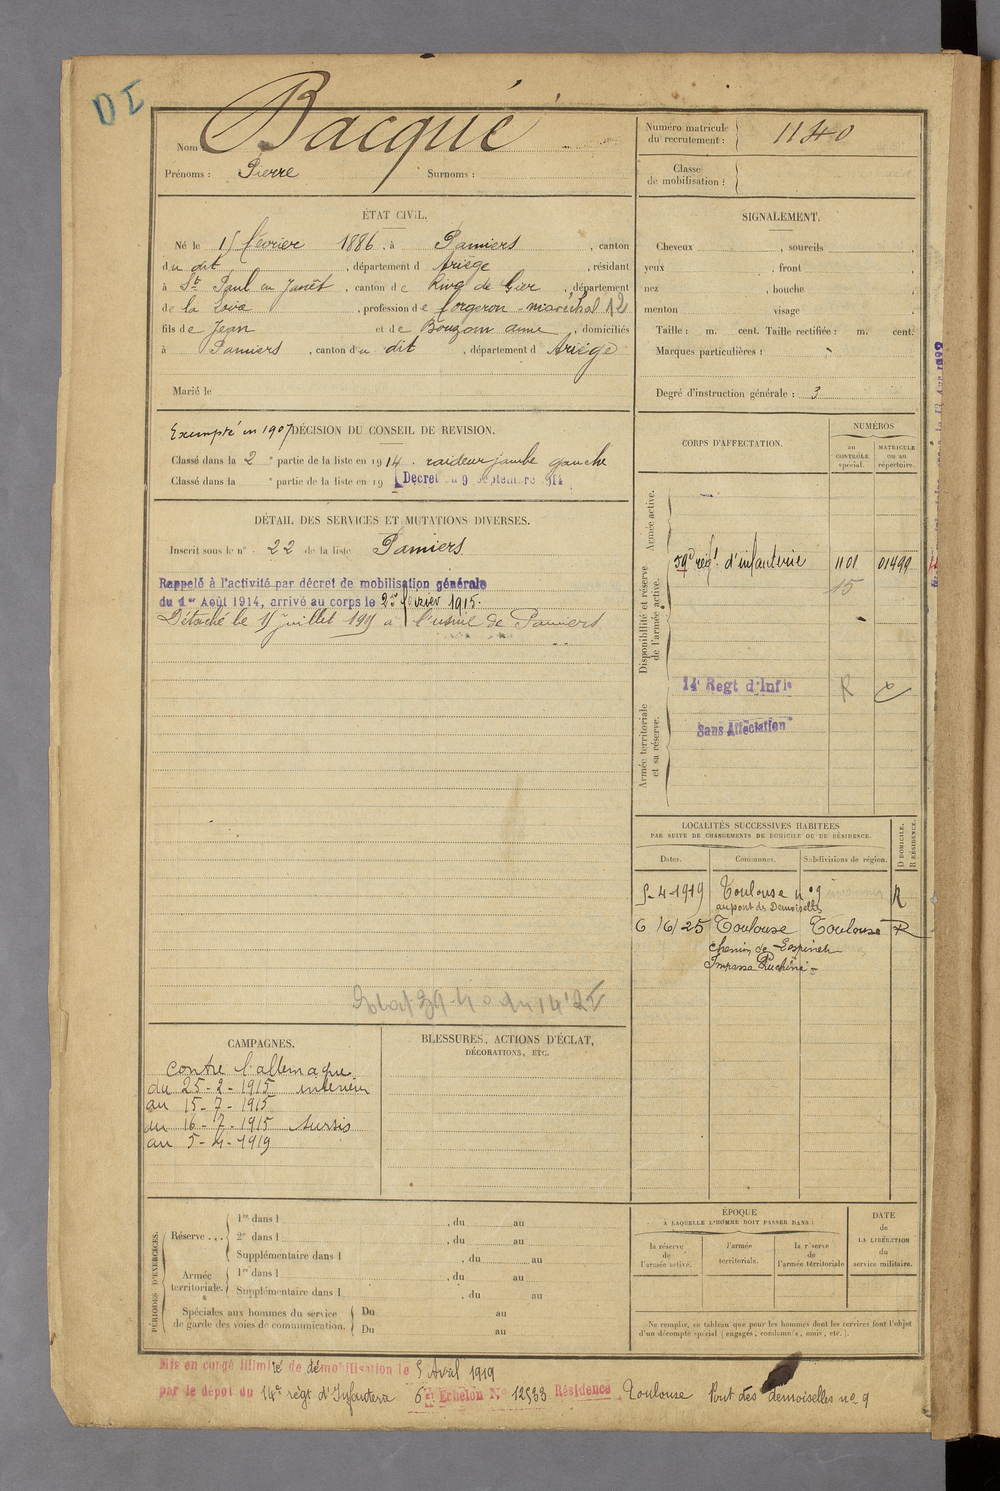 DI
Nom Bacqué
Prénoms : Pierre Surnoms :
Numéro matricule du recrutement : 1140
Classe de mobilisation :
ÉTAT CIVIL.
Né le 15 février 1886, à Pamiers, canton
du dit, département d Ariège, résidant
à St Paul en Jarrêt, canton de Rive de Gier, département
de la Loire, profession de forgeron-maréchal 12
fils de Jean et de Bouzom anne, domiciliés
à Pamiers, canton du dit, département d Ariège
Marié le
SIGNALEMENT.
Cheveux , sourcils
yeux , front
nez , bouche
menton visage
Taille : m. cent. Taille rectifiée : m. cent.
Marques particulières :
Degré d'instruction générale : 3
Exempté en 1907 DÉCISION DU CONSEIL DE REVISION.
Classé dans la 2e partie de la liste en 1914. raideur jambe gauche
Classé dans la e partie de la liste en 19 Décret du 9 Septembre 914
DÉTAIL DES SERVICES ET MUTATIONS DIVERSES.
Inscrit sous le n° 22 de la liste Pamiers
Rappelé à l'activité par décret de mobilisation générale
du 1er Août 1914, arrivé au corps le 25 février 1915.
Détaché le 15 juillet 1915 à l'usine de Pamiers
CORPS D'AFFECTATION.
NUMÉROS
au CONTRÔLE spécial.
MATRICULE ou au répertoire.
Armée active.
Disponibilité et réserve de l'armée active.
59e régt d'infanterie 1101 01499
15
14e Regt d'Infie R
Sans Affectation
Armée territoriale et sa réserve.
LOCALITÉS SUCCESSIVES HABITÉES
PAR SUITE DE CHANGEMENTS DE DOMICILE OU DE RÉSIDENCE.
Dates. Communes. Subdivisions de région. D DOMICILE. R RÉSIDENCE.
5-4-1919 Toulouse n° 9 R
au pont des Demoiselles
6/6/25 Toulouse Toulouse R
chemin de
Impasse
CAMPAGNES.
contre l'allemagne
du 25-2-1915 intérieur
au 15-7-1915
du 16-7-1915 sursis
au 5-4-1919
BLESSURES, ACTIONS D'ÉCLAT,
DÉCORATIONS, ETC.
PÉRIODES D'EXERCICES.
Réserve ... 1re dans l , du au
2e dans l , du au
Supplémentaire dans l , du au
Armée territoriale. 1re dans l , du au
Supplémentaire dans l , du au
Spéciales aux hommes du service Du au
de garde des voies de communication. Du au
ÉPOQUE
À LAQUELLE L'HOMME DOIT PASSER DANS :
la réserve de l'armée active.
l'armée territoriale.
la réserve de l'armée territoriale
DATE de LA LIBÉRATION du service militaire.
Ne remplir, ce tableau que pour les hommes dont les services font l'objet
d'un décompte spécial (engagés, condamnés, omis, etc.).
Mis en congé illimité de démobilisation le 5 Avril 1919
par le dépôt du 14e règt d'Infanterie 6e Echelon N° 12533 Résidence Toulouse Pont des demoiselles n° 9